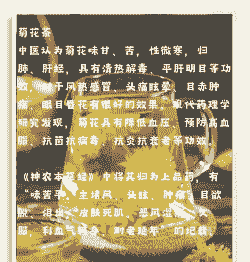 菊花茶
中医认为菊花味甘、苦,性微寒,归
肺、肝经,具有清热解毒、平肝明目等功
效,对于风热感冒、头痛眩晕、目赤肿
痛、眼目昏花有很好的效果。现代药理学
研究发现,菊花具有降低血压、预防高血
脂、抗菌抗病毒、抗炎抗衰老等功效。
《神农本草经》中将其归为上品药,有
"味苦平。主诸风,头眩、肿痛,目欲
脱,泪出,皮肤死肌,恶风湿痹,久
服,利血气,轻身,耐老延年"的记载